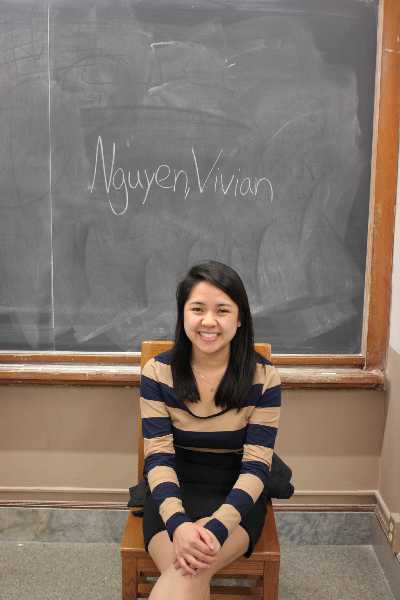 Nguyen, Vivian